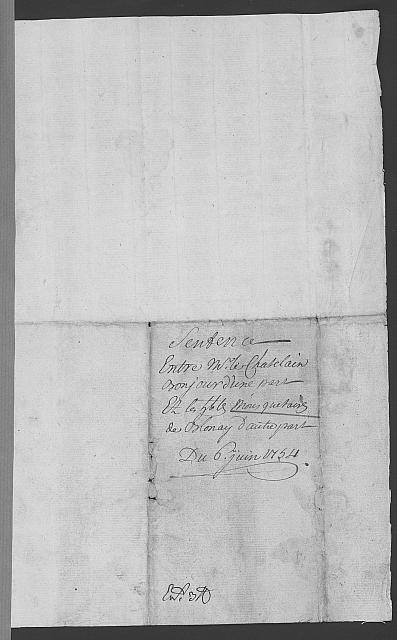 Sentence
Entre Mr. le Chatelain
Bonjour d'une part
Et les hble Mousquetaires
de Blonay d'autre part
Du 6e. juin 1754.